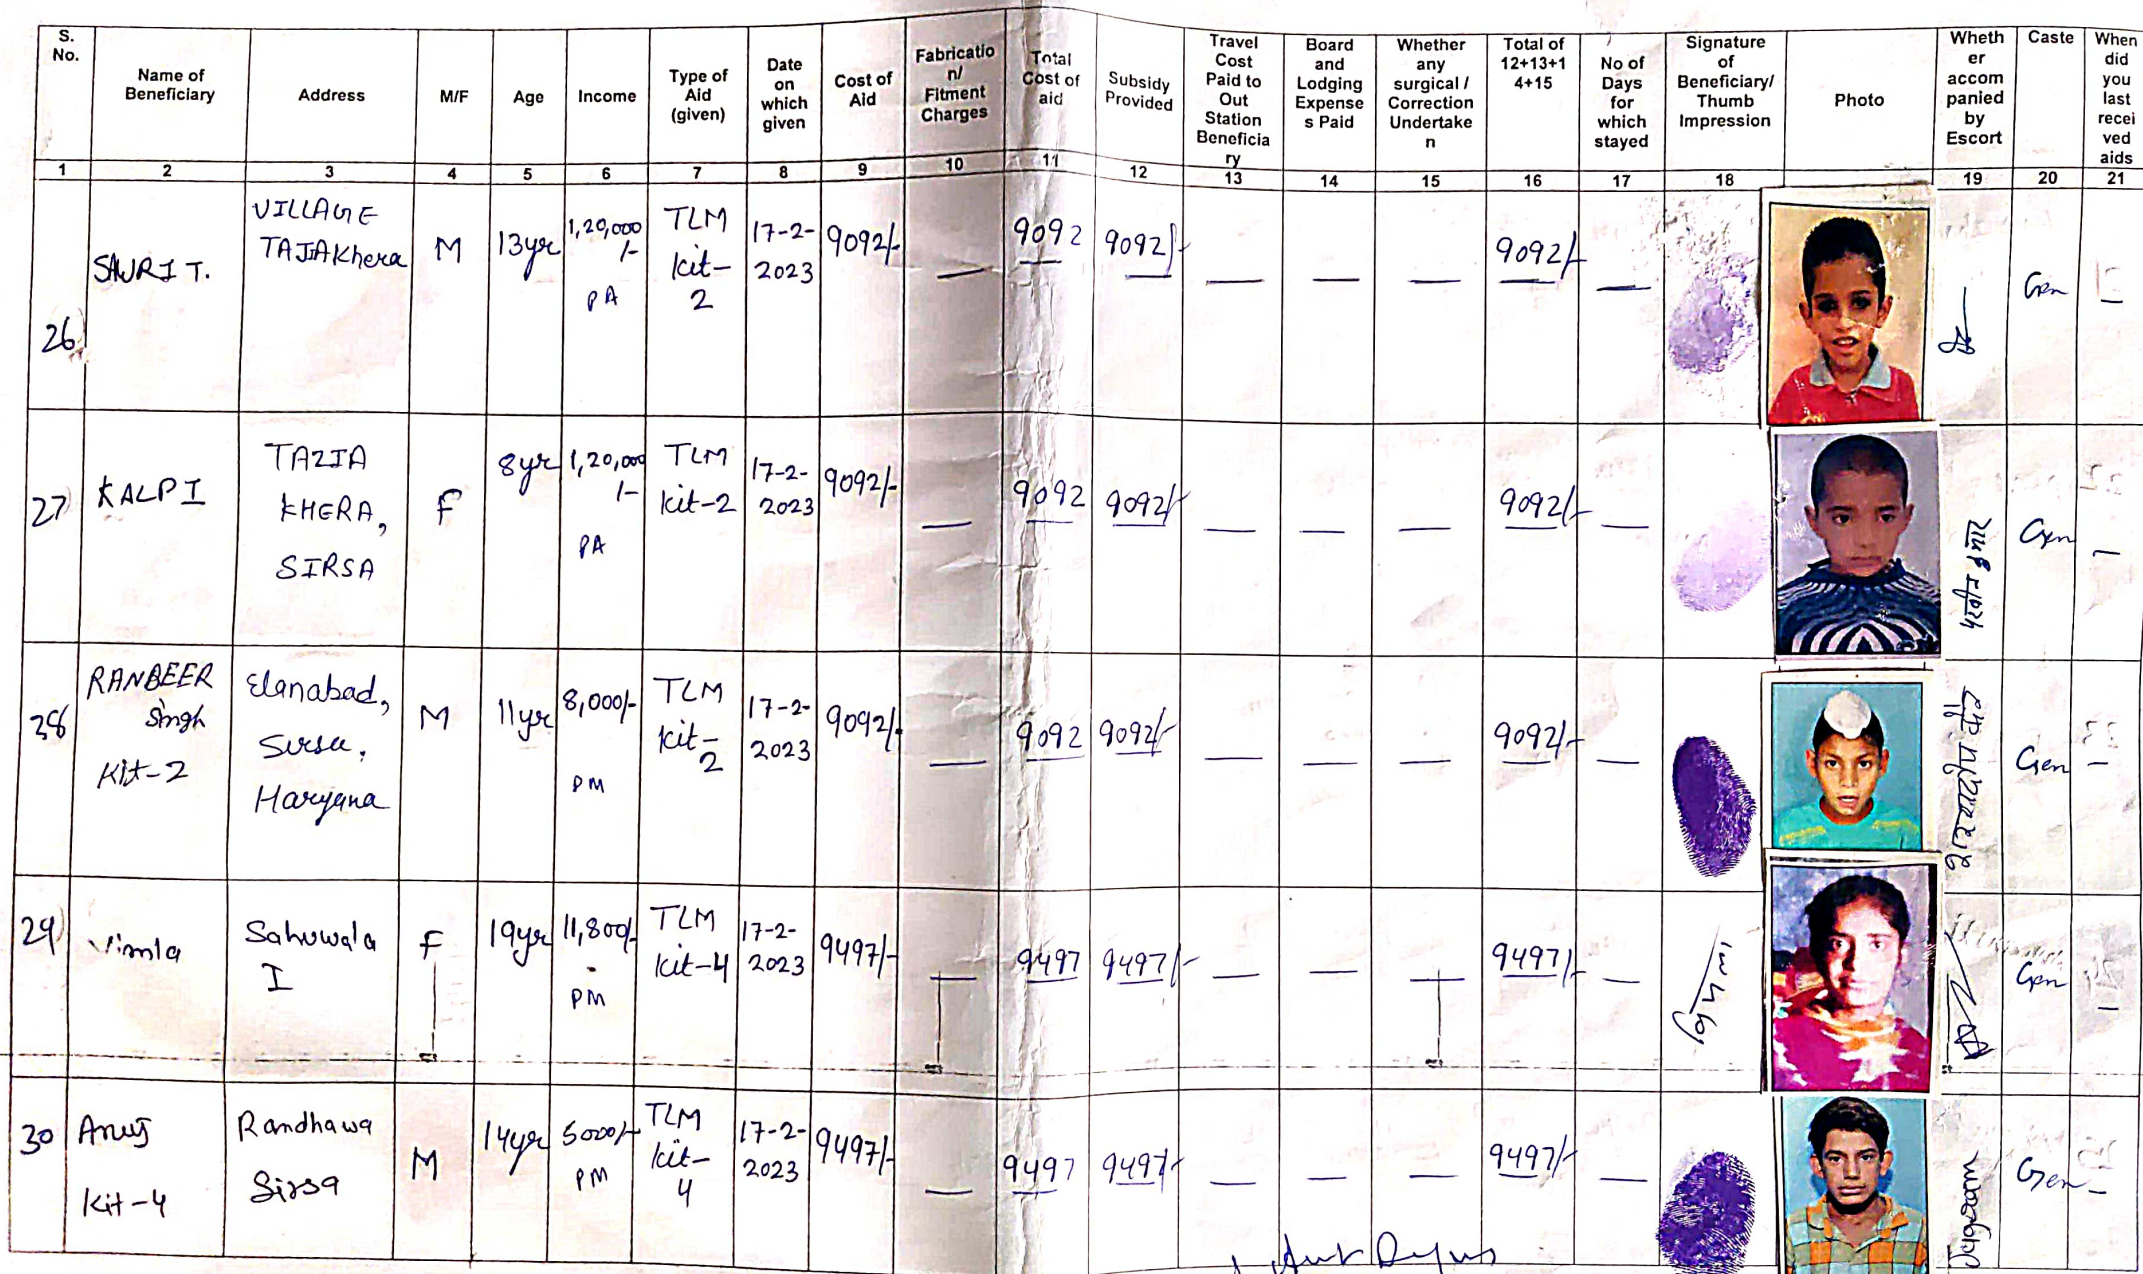 S. No. | Name of Beneficiary | Address | M/F | Age | Income | Type of Aid (given) | Date on which given | Cost of Aid | Fabricatio n/ Fitment Charges | Total Cost of aid | Subsidy Provided | Travel Cost Paid to Out Station Beneficia ry | Board and Lodging Expense s Paid | Whether any surgical / Correction Undertake n | Total of 12+13+1 4+15 | No of Days for which stayed | Signature of Beneficiary/ Thumb Impression | Photo | Wheth er accom panied by Escort | Caste | When did you last recei ved aids
1 | 2 | 3 | 4 | 5 | 6 | 7 | 8 | 9 | 10 | 11 | 12 | 13 | 14 | 15 | 16 | 17 | 18 | 19 | 20 | 21
26 | SAURI T. | VILLAGE TAJIAKhera | M | 13yr | 1,20,000 /- PA | TLM Kit-2 | 17-2-2023 | 9092/- | — | 9092 | 9092/- | — | — | — | 9092/- | — | Gen | —
27 | KALPI | TAZIA KHERA, SIRSA | F | 8yr | 1,20,000 /- PA | TLM Kit-2 | 17-2-2023 | 9092/- | — | 9092 | 9092/- | — | — | — | 9092/- | — | Gen | —
28 | RANBEER Singh Kit-2 | Elanabad, Sirsa, Haryana | M | 11yr | 8,000/- PM | TLM Kit-2 | 17-2-2023 | 9092/- | — | 9092 | 9092/- | — | — | — | 9092/- | — | Gen | —
29 | Vimla | Sahuwala I | F | 19yr | 11,800/- PM | TLM Kit-4 | 17-2-2023 | 9497/- | — | 9497 | 9497/- | — | — | — | 9497/- | — | विमला | Gen | —
30 | Anuj Kit-4 | Randhawa Sirsa | M | 14yr | 5000/- PM | TLM Kit-4 | 17-2-2023 | 9497/- | — | 9497 | 9497/- | — | — | — | 9497/- | — | Gen | —